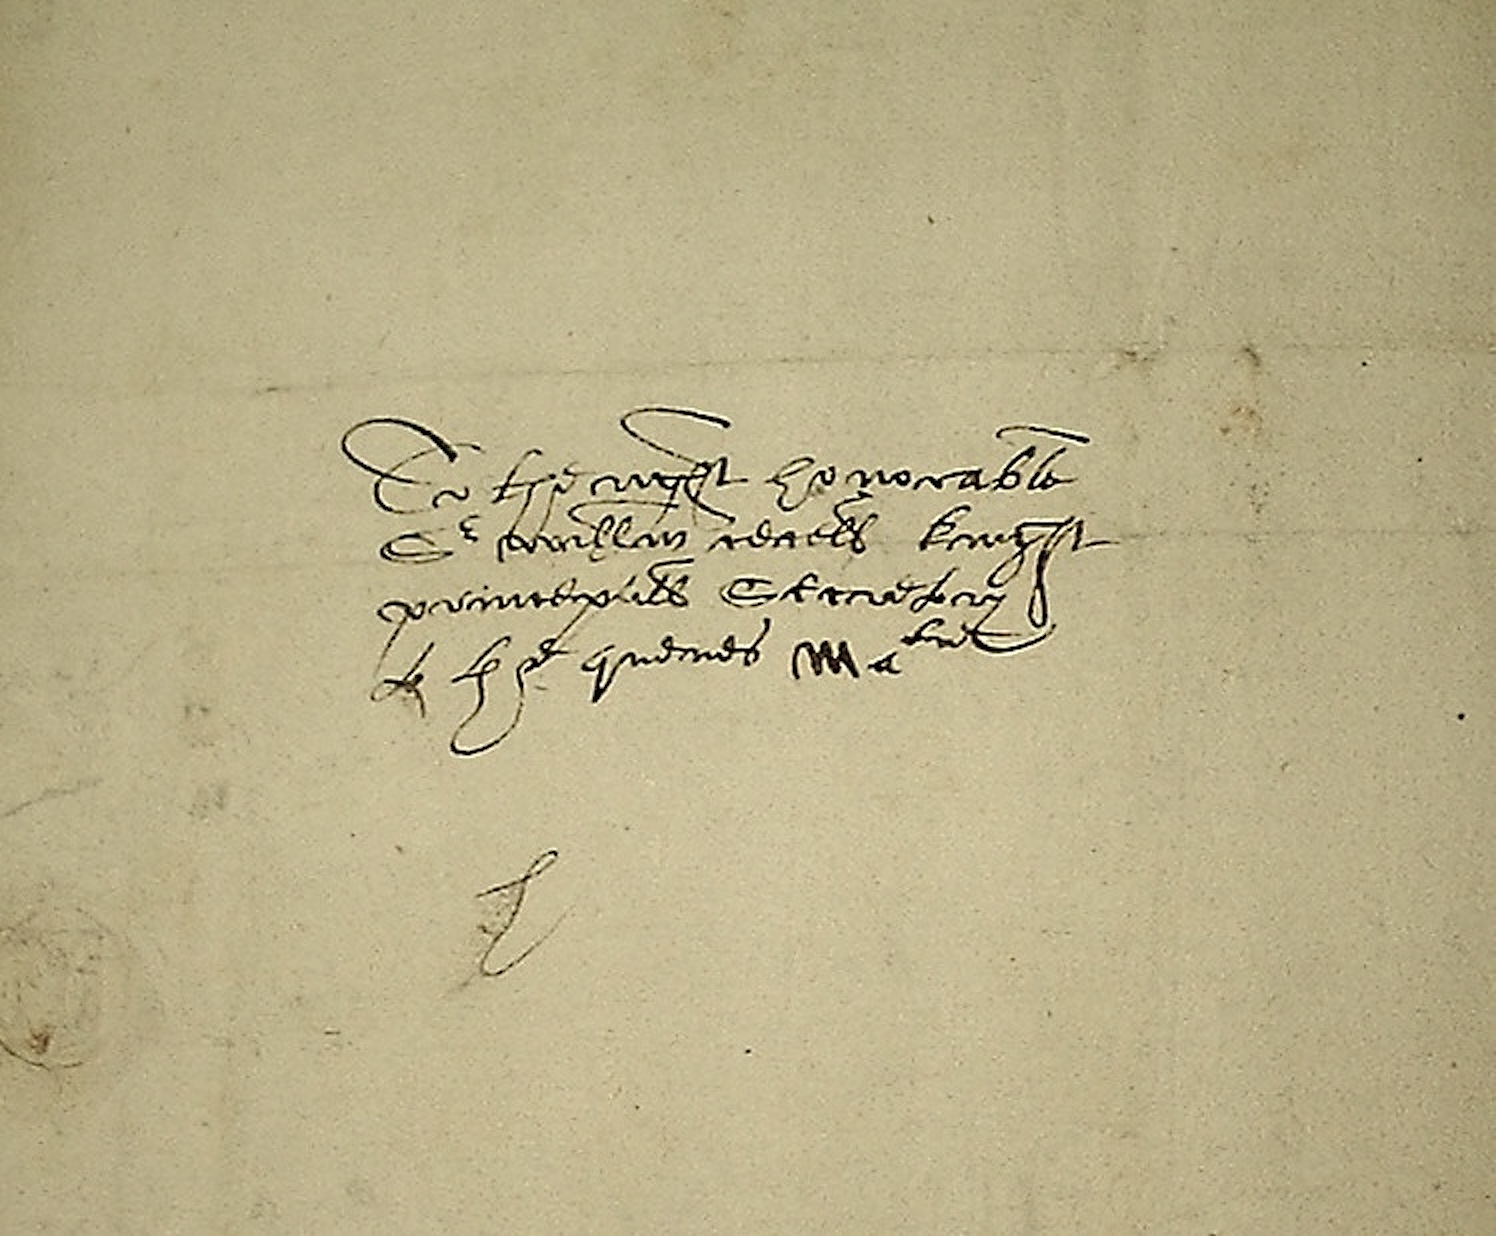 To the right honorable
Sr william cecell knight
princepall Secretary
to the quenes Matie